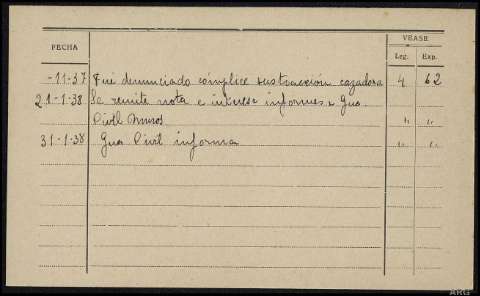 VEASE
FECHA Leg. Exp.
-11-37 Fué denunciado cómplice sustracción cazadora 4 62
21-1-38 Se remite nota e interese informes a Gua.
Civil Muros " "
31-1-38 Gua Civil informa " "
ARG